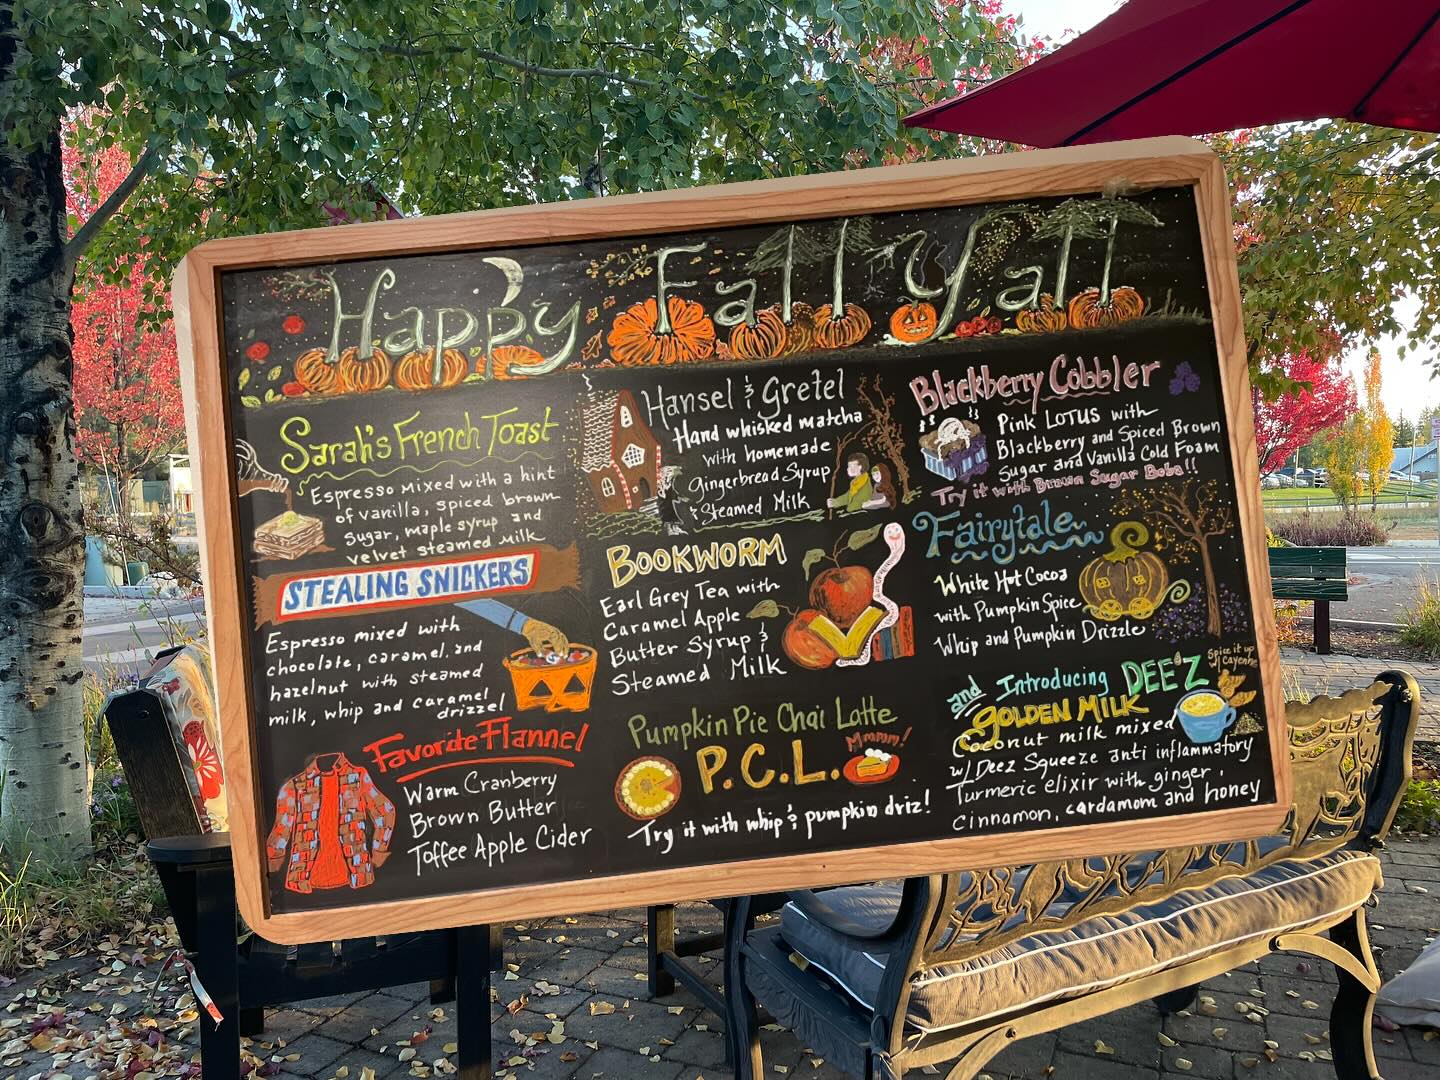 Happy Fall Y'all
Sarah's French Toast
Espresso mixed with a hint
of vanilla, spiced brown
sugar, maple syrup and
velvet steamed milk
STEALING SNICKERS
Espresso mixed with
chocolate, caramel and
hazelnut with steamed
milk, whip and caramel
drizzel
Favorite Flannel
Warm Cranberry
Brown Butter
Toffee Apple Cider
Hansel & Gretel
Hand whisked matcha
with homemade
gingerbread Syrup
& Steamed Milk
BOOKWORM
Earl Grey Tea with
Caramel Apple
Butter Syrup &
Steamed Milk
Pumpkin Pie Chai Latte
P.C.L.
Mmmm!
Try it with whip & pumpkin driz!
Blackberry Cobbler
Pink LOTUS with
Blackberry and Spiced Brown
Sugar and Vanilla Cold Foam
Try it with Brown Sugar Boba!!
Fairytale
White Hot Cocoa
with Pumpkin Spice
Whip and Pumpkin Drizzle
and Introducing DEE'Z
GOLDEN MILK
Spice it up
w/ Cayenne
Coconut milk mixed
w/ Deez Squeeze anti inflammatory
Turmeric elixir with ginger,
cinnamon, cardamom and honey